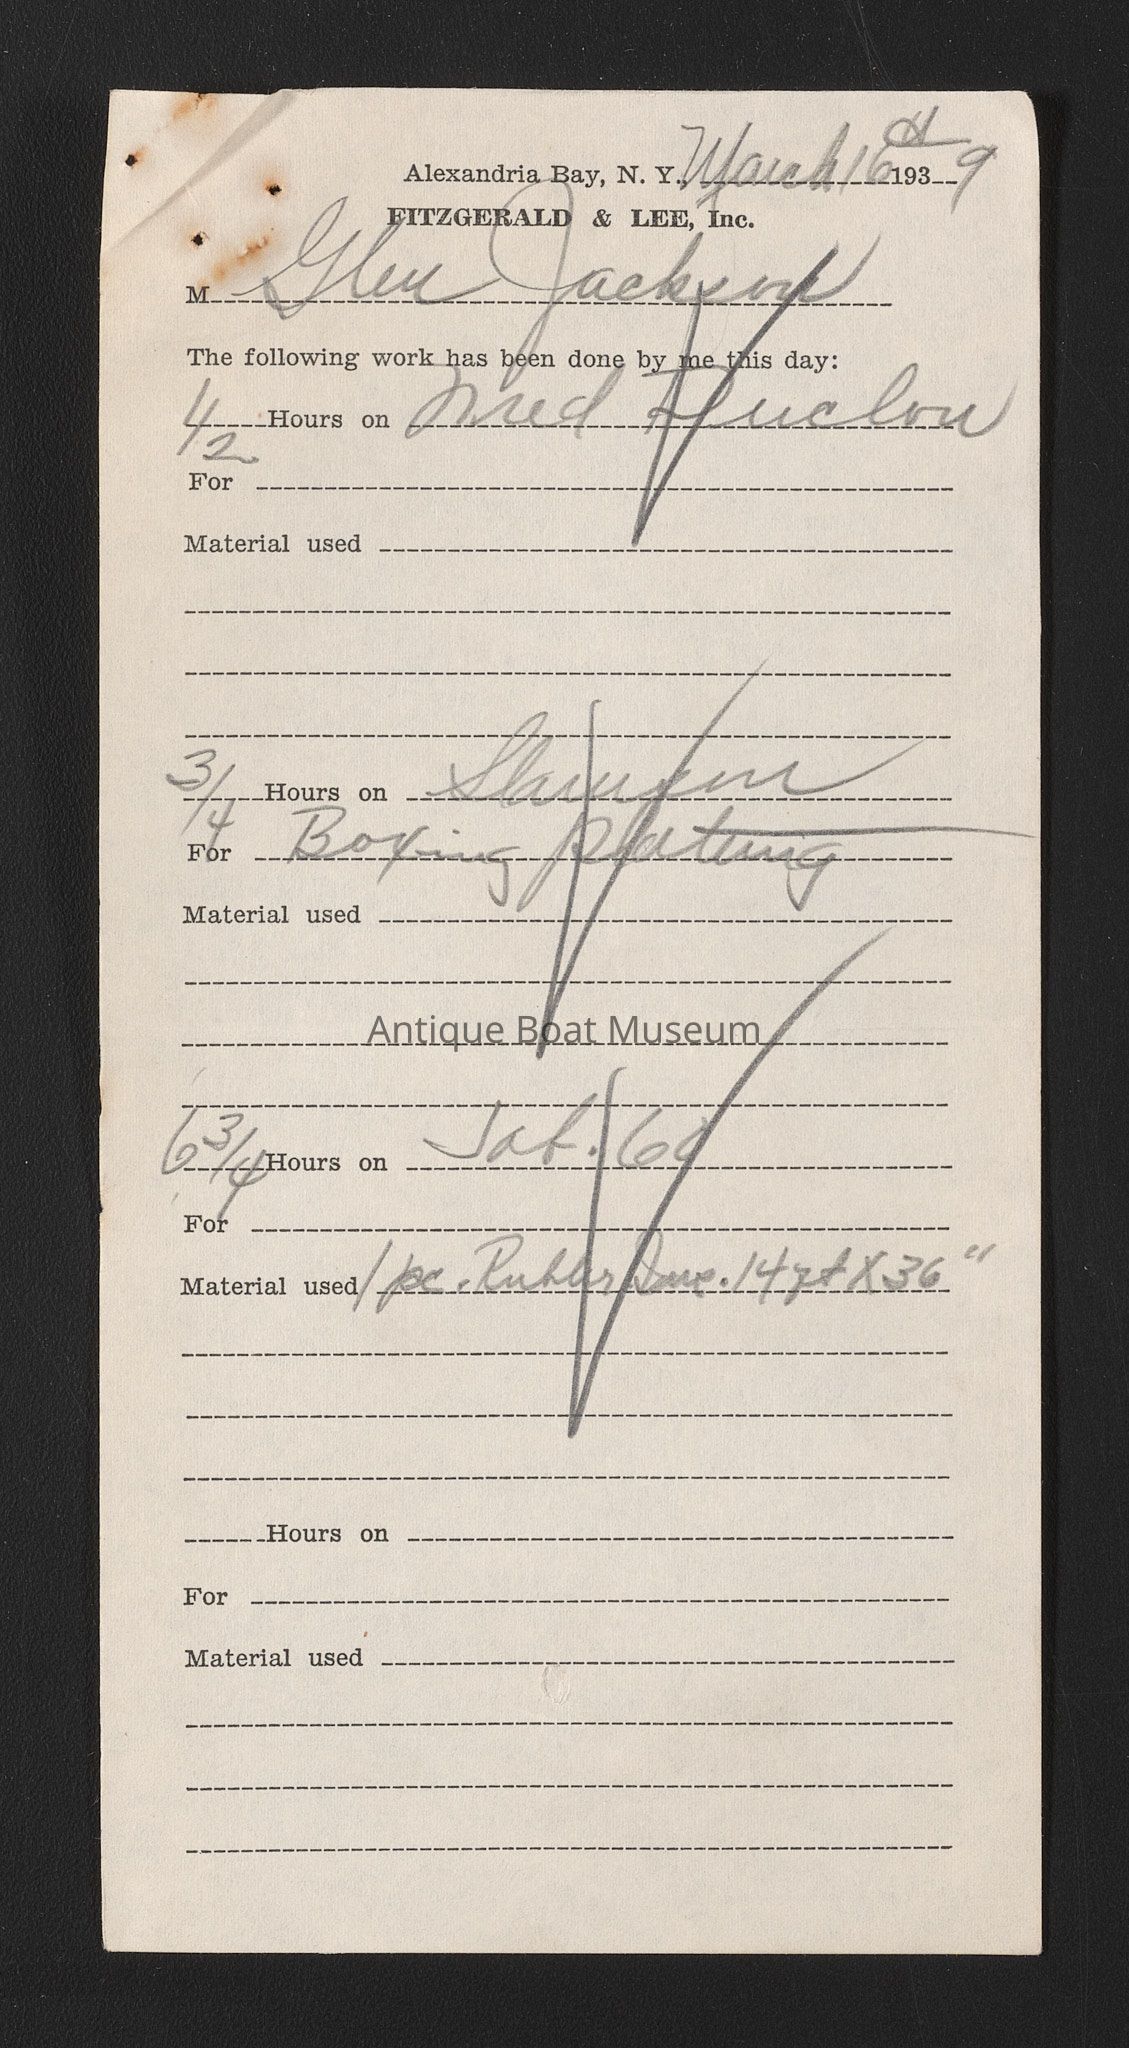 Alexandria Bay, N. Y. March 16th 1939
FITZGERALD & LEE, Inc.
M Glen Jackson
The following work has been done by me this day:
1/2 Hours on Fred
For
Material used
3/4 Hours on
For Boxing plating
Material used
Antique Boat Museum
6 3/4 Hours on Job. 60
For
Material used 1 pc. Rubber 14 X 36"
Hours on
For
Material used